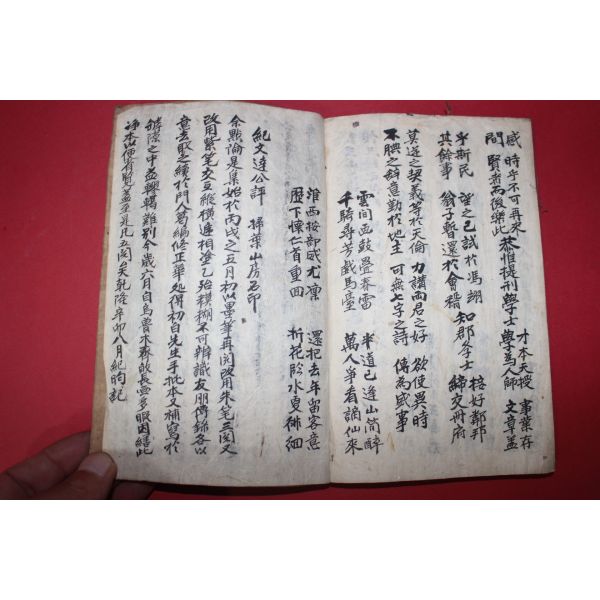 感 時乎不可再來 恭惟提刑學士 才本天授 事業存
間 賢者而後樂此 學為人師 文章盖
乎斯民 望之已試於馮翊 知郡學士 接好鄰邦
其餘事 翁子暫還於會稽 締交冊府
莫逆之契義等於天倫 力講両君之好 欲使異時
不腆之辞意勤於地主 可無七字之詩 傳為盛事
雲間画鼓疊春雷 半道已逢山簡醉
千騎尋芳戲馬臺 萬人爭看謫仙來
淮西按部威尤凜 還把去年留客意
歷下懷仁首重回 折花臨水更徘徊
紀文達公評 掃葉山房石印
余點論是集始於丙戌之五月初以墨筆再閱改用朱筆三閱又
改用紫筆交互縱橫遞相塗乙殆模糊不可辨識友朋傳錄各以
意去取之續於門人葛編修正華処得初白先生手批本又補寫於
罅隙之中益轇轕難別今歲六月自烏魯木齊皈長晝多暇因繕此
淨本以便省覽盖至是凡五閱矣乾隆辛卯八月紀昀記